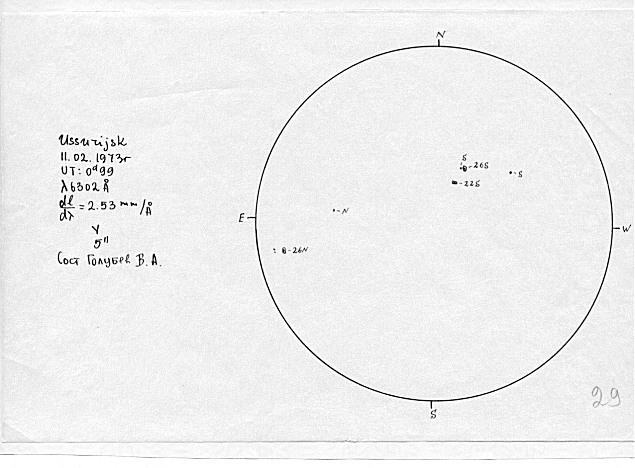 Ussurijsk
11.02.1973г
UT: 0ᵈ99
λ6302Å
dl/dλ = 2.53 mm/Å
γ
5"
Сост Голубев В.А.
N
S
-26S
-S
-22S
-N
E
W
-26N
S
29